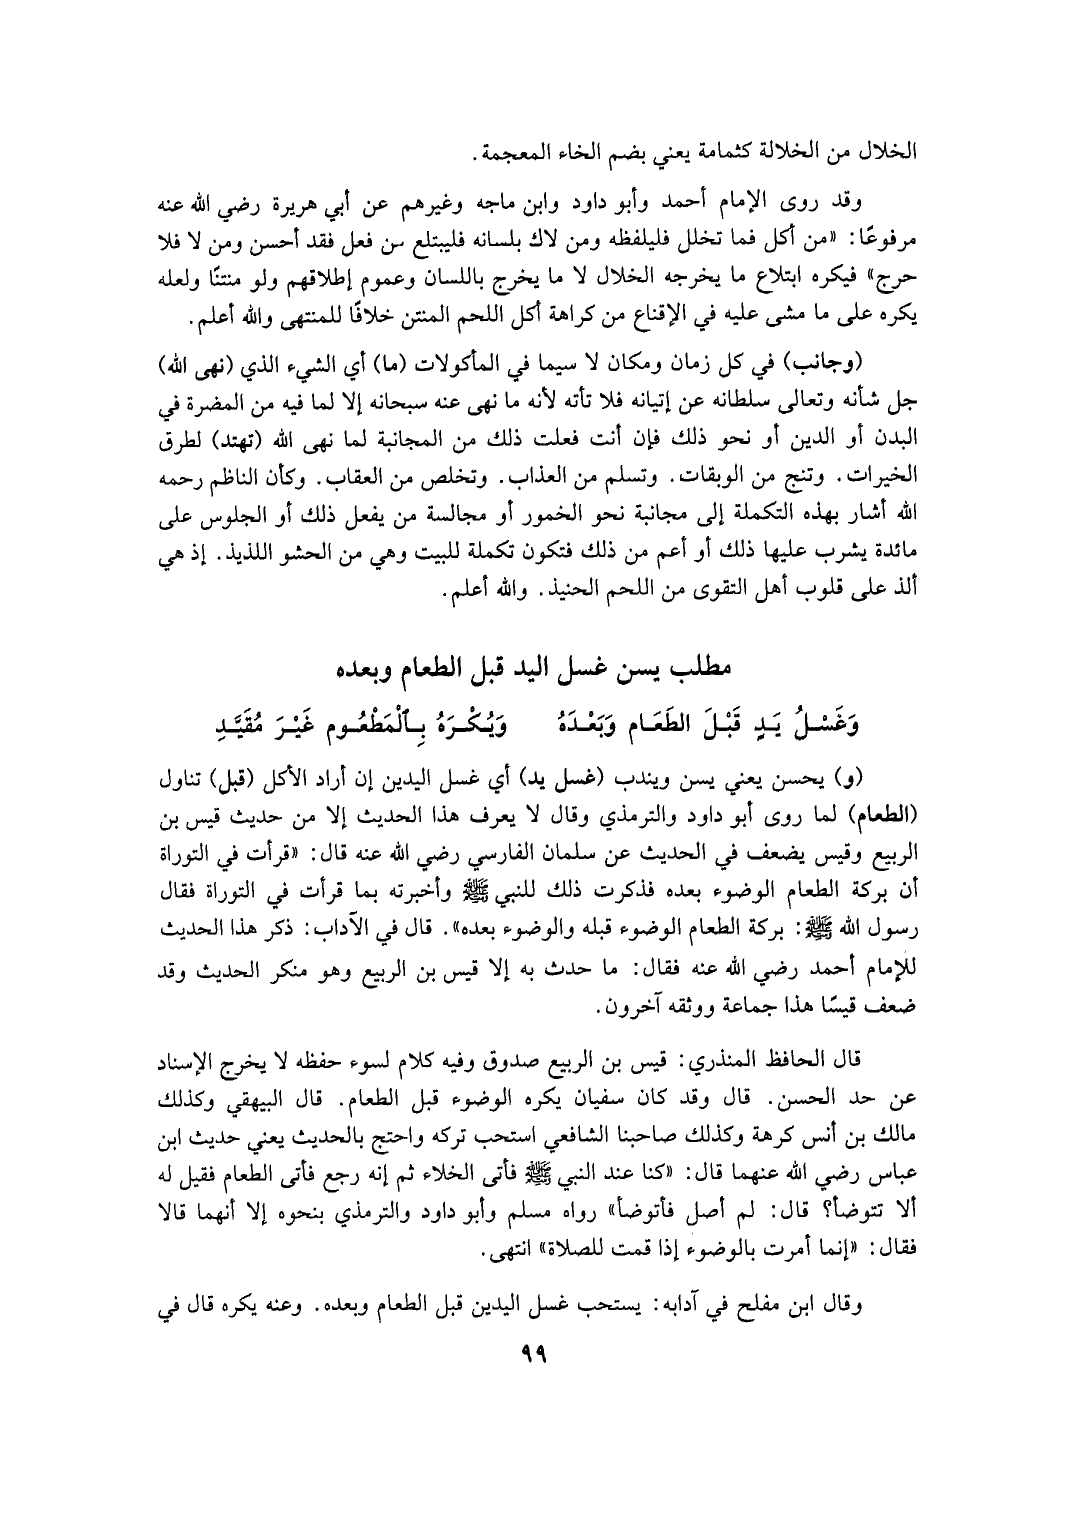 الخلال من الخلالة كثمامة يعني بضم الخاء المعجمة.
وقد روى الإمام أحمد وأبو داود وابن ماجه وغيرهم عن أبي هريرة رضي الله عنه
مرفوعًا: «من أكل فما تخلل فليلفظه ومن لاك بلسانه فليبتلع من فعل فقد أحسن ومن لا فلا
حرج» فيكره ابتلاع ما يخرجه الخلال لا ما يخرج باللسان وعموم إطلاقهم ولو منتنًا ولعله
يكره على ما مشى عليه في الإقناع من كراهة أكل اللحم المنتن خلافًا للمنتهى والله أعلم.
(وجانب) في كل زمان ومكان لا سيما في المأكولات (ما) أي الشيء الذي (نهى الله)
جل شأنه وتعالى سلطانه عن إتيانه فلا تأته لأنه ما نهى عنه سبحانه إلا لما فيه من المضرة في
البدن أو الدين أو نحو ذلك فإن أنت فعلت ذلك من المجانبة لما نهى الله (تهتد) لطرق
الخيرات. وتنج من الوبقات. وتسلم من العذاب. وتخلص من العقاب. وكأن الناظم رحمه
الله أشار بهذه التكملة إلى مجانبة نحو الخمور أو مجالسة من يفعل ذلك أو الجلوس على
مائدة يشرب عليها ذلك أو أعم من ذلك فتكون تكملة للبيت وهي من الحشو اللذيذ. إذ هي
ألذ على قلوب أهل التقوى من اللحم الحنيذ. والله أعلم.
مطلب يسن غسل اليد قبل الطعام وبعده
وَغَسْلُ يَدٍ قَبْلَ الطَعَامِ وَبَعْدَهُ وَيُكْرَهُ بِٱلْمَطْعُومِ غَيْرَ مُقَيَّدِ
(و) يحسن يعني يسن ويندب (غسل يد) أي غسل اليدين إن أراد الأكل (قبل) تناول
(الطعام) لما روى أبو داود والترمذي وقال لا يعرف هذا الحديث إلا من حديث قيس بن
الربيع وقيس يضعف في الحديث عن سلمان الفارسي رضي الله عنه قال: «قرأت في التوراة
أن بركة الطعام الوضوء بعده فذكرت ذلك للنبي ﷺ وأخبرته بما قرأت في التوراة فقال
رسول الله ﷺ: بركة الطعام الوضوء قبله والوضوء بعده». قال في الآداب: ذكر هذا الحديث
للإمام أحمد رضي الله عنه فقال: ما حدث به إلا قيس بن الربيع وهو منكر الحديث وقد
ضعف قيسًا هذا جماعة ووثقه آخرون.
قال الحافظ المنذري: قيس بن الربيع صدوق وفيه كلام لسوء حفظه لا يخرج الإسناد
عن حد الحسن. قال وقد كان سفيان يكره الوضوء قبل الطعام. قال البيهقي وكذلك
مالك بن أنس كرهة وكذلك صاحبنا الشافعي استحب تركه واحتج بالحديث يعني حديث ابن
عباس رضي الله عنهما قال: «كنا عند النبي ﷺ فأتى الخلاء ثم إنه رجع فأتى الطعام فقيل له
ألا تتوضأ؟ قال: لم أصل فأتوضأ» رواه مسلم وأبو داود والترمذي بنحوه إلا أنهما قالا
فقال: «إنما أمرت بالوضوء إذا قمت للصلاة» انتهى.
وقال ابن مفلح في آدابه: يستحب غسل اليدين قبل الطعام وبعده. وعنه يكره قال في
٩٩